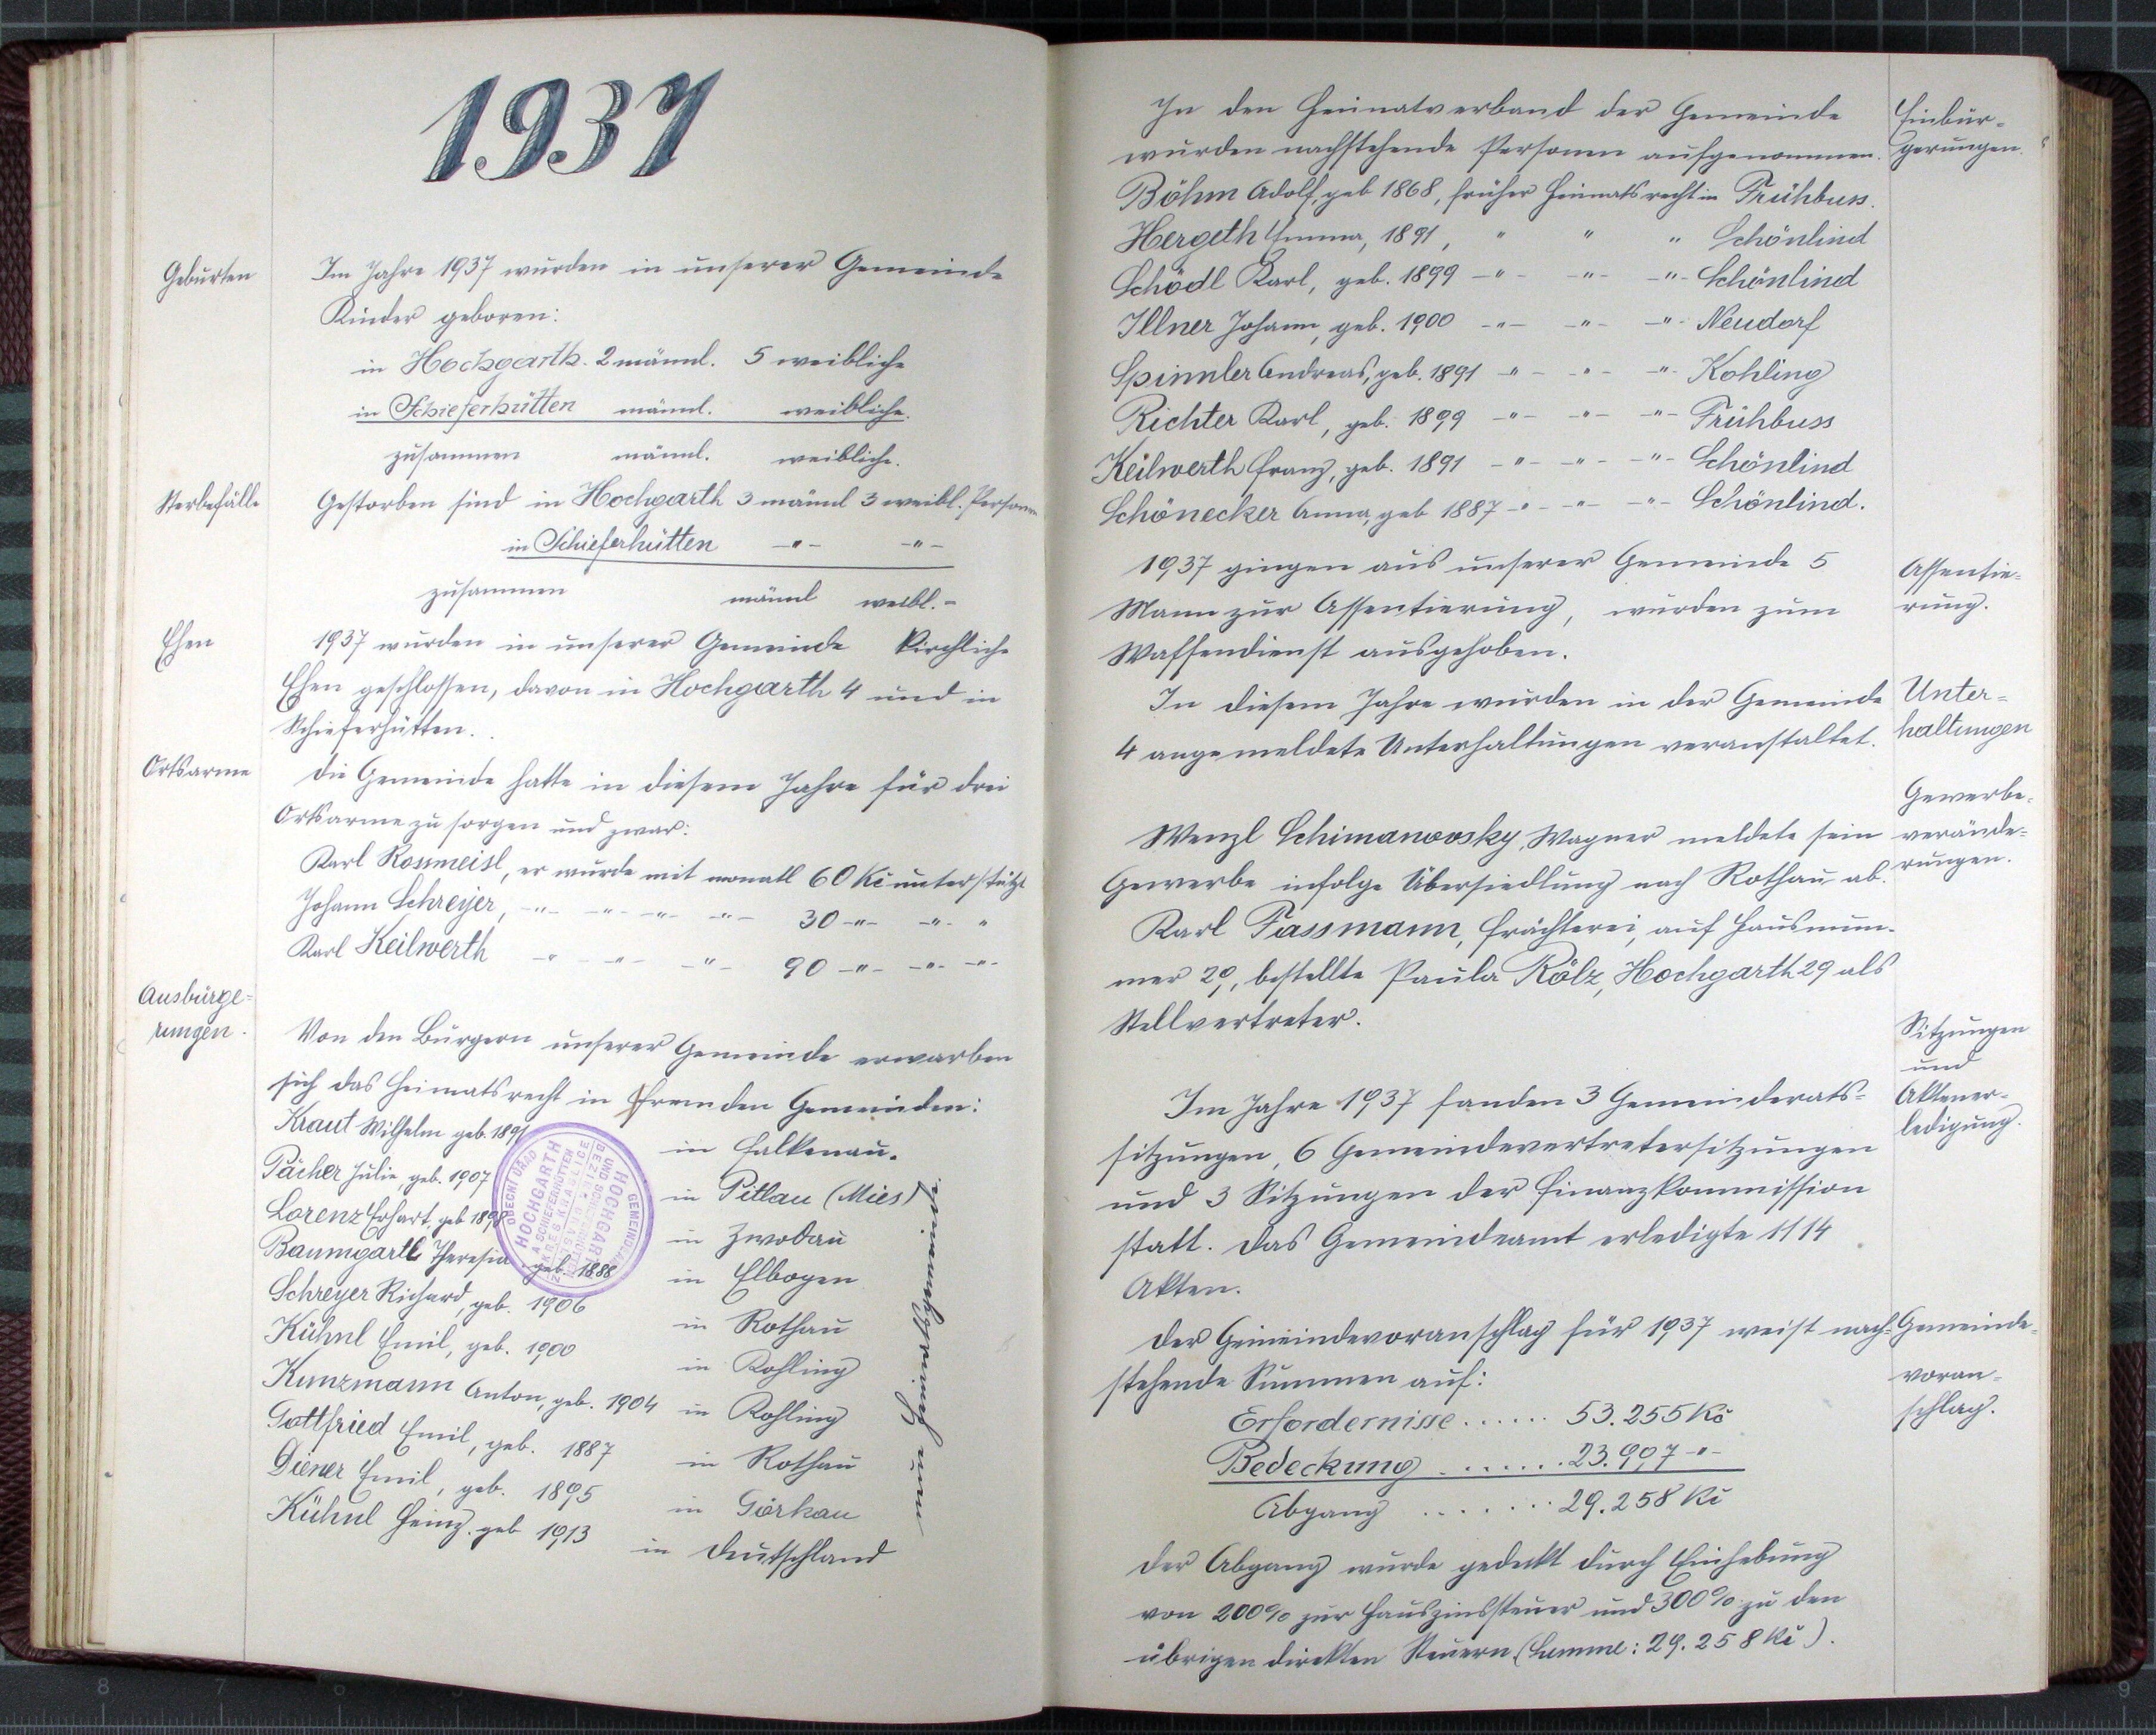 1937
Geburten
Im Jahre 1937 wurden in unserer Gemeinde
Kinder geboren:
in Hochgarth. 2 männl. 5 weibliche
in Schieferhütten männl. weibliche.
zusammen männl. weibliche.
Sterbefälle
Gestorben sind in Hochgarth 3 männl 3 weibl. Personen
in Schieferhütten -"- -"-
zusammen männl weibl.-
Ehen
1937 wurden in unserer Gemeinde kirchliche
Ehen geschlossen, davon in Hochgarth 4 und in
Schieferhütten.
Ortsarme
Die Gemeinde hatte in diesem Jahre für drei
Ortsarme zu sorgen und zwar:
Karl Rossmeisl, er wurde mit monatl 60 Kč unterstützt
Johann Schreyer, -"- -"- -"- -"- 30 -"- -"- "
Karl Keilwerth -"- -"- -"- 90 -"- -"- -"-
Ausbürge=
rungen.
Von den Bürgern unserer Gemeinde erwarben
sich das Heimatsrecht in fremden Gemeinden:
Kraut Wilhelm geb. 1891 in Falkenau.
Pächer Julie, geb. 1907 in Pitlau (Mies)
Lorenz Erhart, geb 1898 in Zwodau
Baumgartl Theresia geb. 1888 in Elbogen
Schreyer Richard, geb. 1906 in Rothau
Kühnl Emil, geb. 1900 in Kohling
Kunzmann Anton, geb. 1904 in Kohling
Gottfried Emil, geb. 1887 in Rothau
Diener Emil, geb. 1895 in Görkau
Kühnl Heinz. geb 1913 in Deutschland
Heimatsgemeinde.
OBECNÍ ÚŘAD
HOCHGARTH
A SCHIEFERHÜTTEN
GEMEINDEAMT
HOCHGARTH
In den Heimatverband der Gemeinde
wurden nachstehende Personen aufgenommen.
Einbür=
gerungen.
Böhm Adolf, geb 1868, früher Heimatsrecht in Frühbuss.
Hergeth Emma, 1891, " " " Schönlind
Schödl Karl, geb. 1899 -"- -"- -"- Schönlind
Illner Johann, geb. 1900 -"- -"- -"- Neudorf
Spinnler Andreas, geb. 1891 -"- -"- -"- Kohling
Richter Karl, geb. 1899 -"- -"- -"- Frühbuss
Keilwerth Franz, geb. 1891 -"- -"- -"- Schönlind
Schönecker Anna, geb 1887 -"- -"- -"- Schönlind.
1937 gingen aus unserer Gemeinde 5
Mann zur Assentierung, wurden zum
Waffendienst ausgehoben.
Assentie=
rung.
In diesem Jahre wurden in der Gemeinde
4 angemeldete Unterhaltungen veranstaltet.
Unter=
haltungen
Wenzl Schimanovsky, Wagner meldete sein
Gewerbe infolge Übersiedlung nach Rothau ab.
Gewerbe=
verände=
rungen.
Karl Fassmann, Frächterei, auf Hausnum-
mer 29, bestellte Paula Rölz, Hochgarth 29 als
Stellvertreter.
Sitzungen
und
Aktener-
ledigung.
Im Jahre 1937 fanden 3 Gemeinderats=
sitzungen, 6 Gemeindevertretersitzungen
und 3 Sitzungen der Finanzkommission
statt. Das Gemeindeamt erledigte 1114
Akten.
Der Gemeindevoranschlag für 1937 weist nach=
stehende Summen auf:
Gemeinde=
voran=
schlag.
Erfordernisse ...... 53.255 Kč
Bedeckung ....... 23.997 -"-
Abgang ...... 29.258 Kč
Der Abgang wurde gedeckt durch Einhebung
von 200% zur Hauszinssteuer und 300% zu den
übrigen direkten Steuern (Summe: 29.258 Kč).